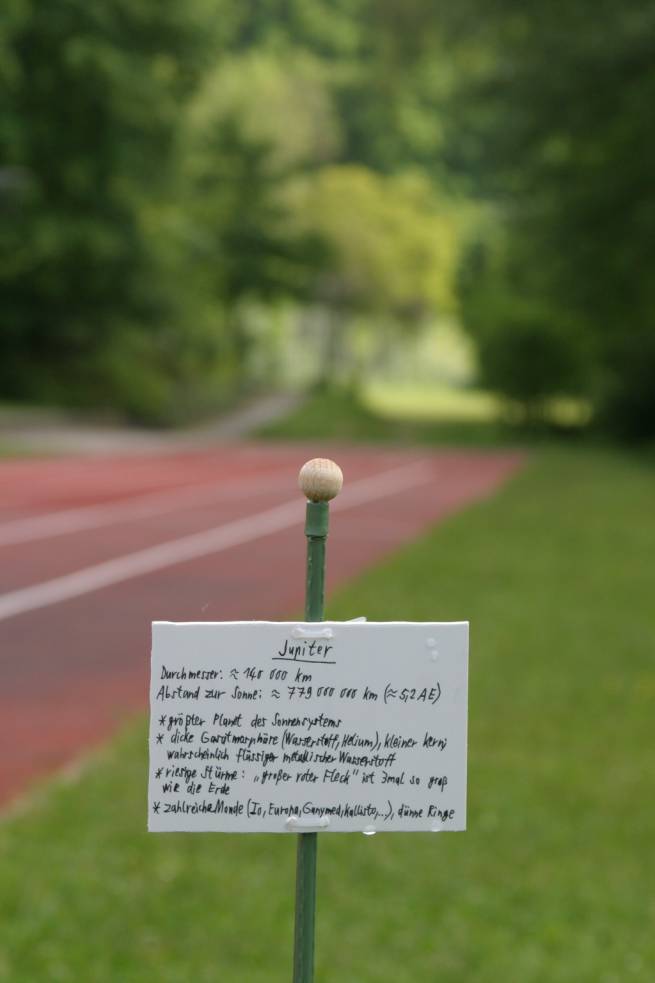 Jupiter
Durchmesser: ≈ 140 000 km
Abstand zur Sonne: ≈ 779 000 000 km (≈ 5,2 AE)
* größter Planet des Sonnensystems
* dicke Gasatmosphäre (Wasserstoff, Helium), kleiner Kern,
wahrscheinlich flüssiger metallischer Wasserstoff
* riesige Stürme: „großer roter Fleck" ist 3mal so groß
wie die Erde
* zahlreiche Monde (Io, Europa, Ganymed, Kallisto,...), dünne Ringe